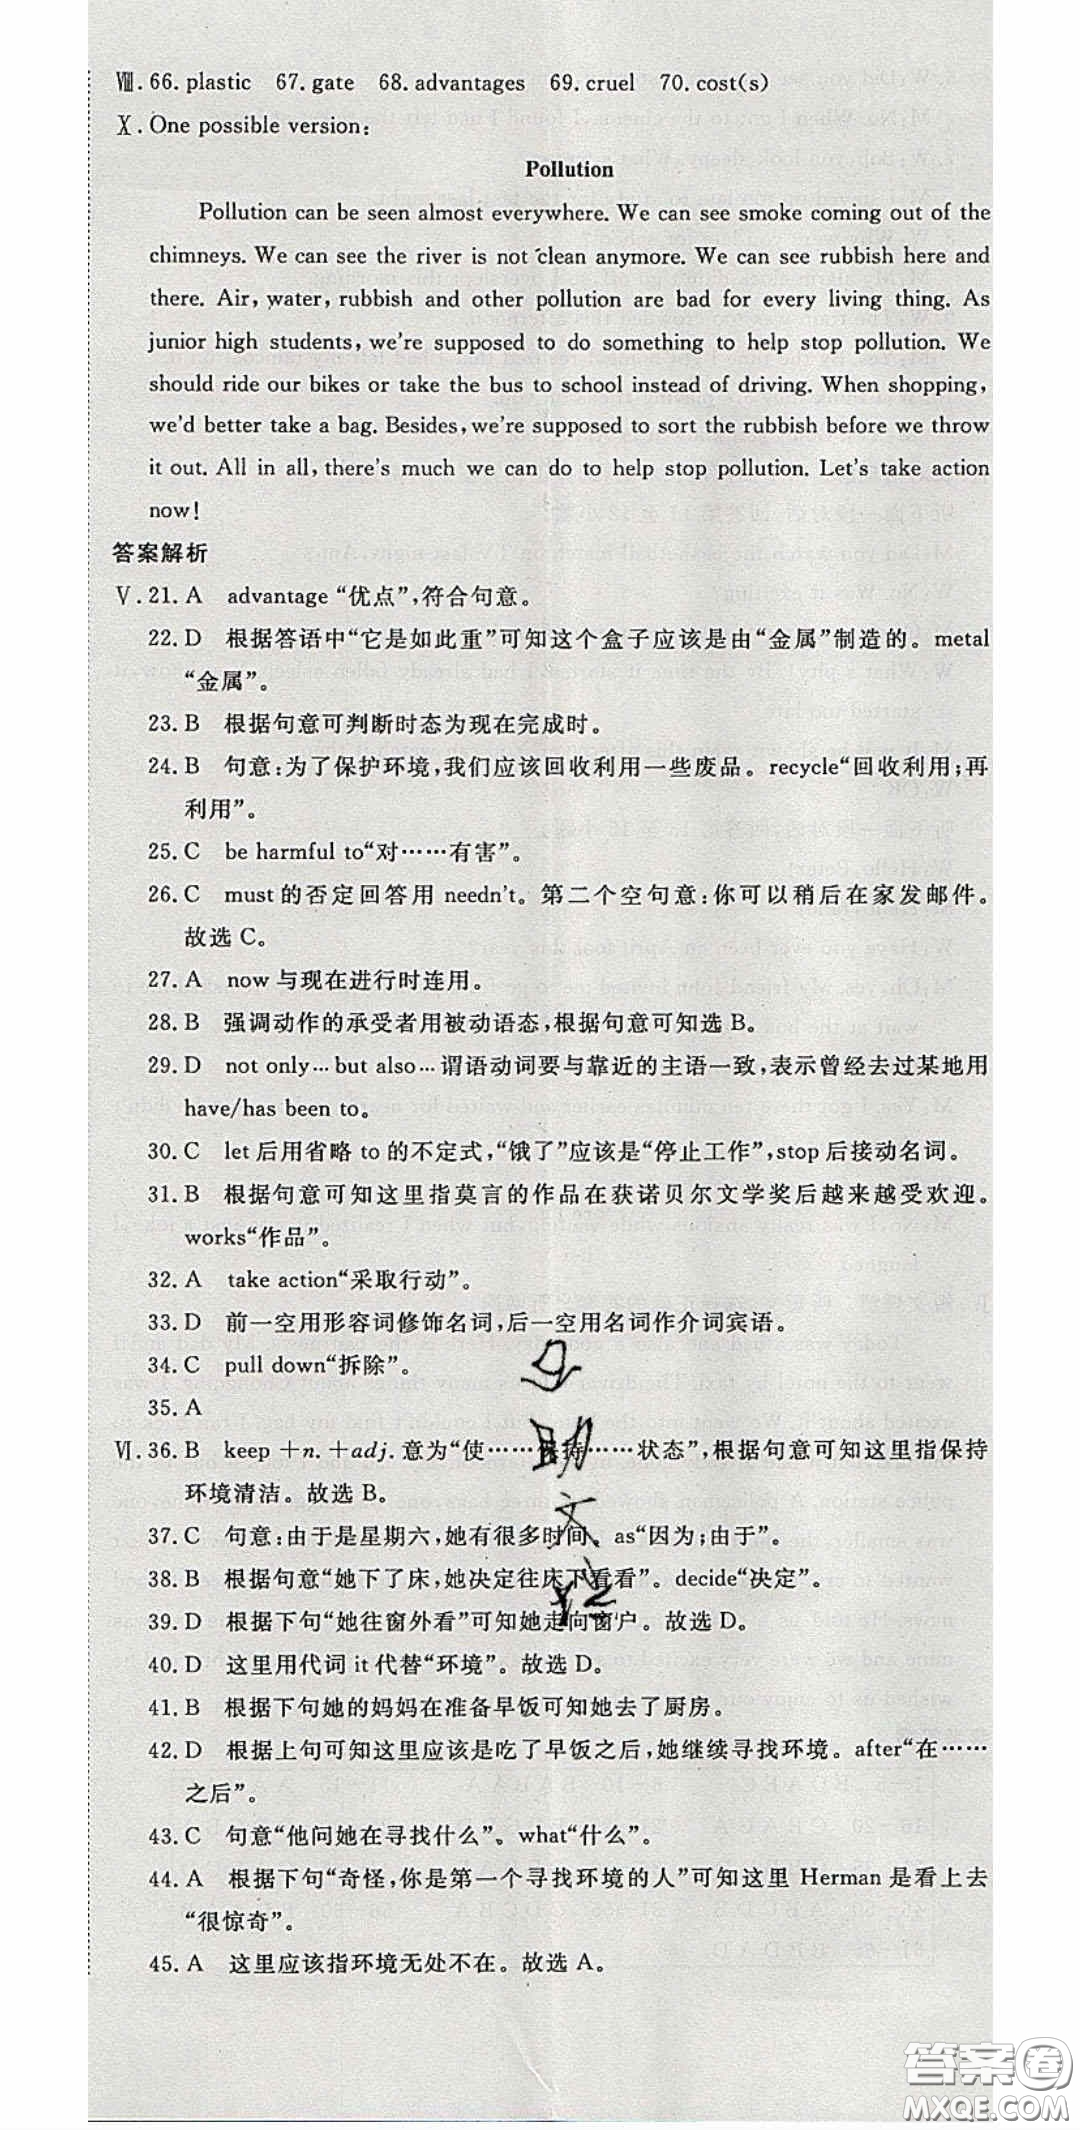 Ⅷ. 66. plastic 67. gate 68. advantages 69. cruel 70. cost(s)
Ⅹ. One possible version:
Pollution
Pollution can be seen almost everywhere. We can see smoke coming out of the
chimneys. We can see the river is not clean anymore. We can see rubbish here and
there. Air, water, rubbish and other pollution are bad for every living thing. As
junior high students, we're supposed to do something to help stop pollution. We
should ride our bikes or take the bus to school instead of driving. When shopping,
we'd better take a bag. Besides, we're supposed to sort the rubbish before we throw
it out. All in all, there's much we can do to help stop pollution. Let's take action
now!
答案解析
Ⅴ. 21. A advantage“优点”,符合句意。
22. D 根据答语中“它是如此重”可知这个盒子应该是由“金属”制造的。metal
“金属”。
23. B 根据句意可判断时态为现在完成时。
24. B 句意:为了保护环境,我们应该回收利用一些废品。recycle“回收利用;再
利用”。
25. C be harmful to“对……有害”。
26. C must 的否定回答用 needn't。第二个空句意:你可以稍后在家发邮件。
故选 C。
27. A now 与现在进行时连用。
28. B 强调动作的承受者用被动语态,根据句意可知选 B。
29. D not only…but also…谓语动词要与靠近的主语一致,表示曾经去过某地用
have/has been to。
30. C let 后用省略 to 的不定式,“饿了”应该是“停止工作”,stop 后接动名词。
31. B 根据句意可知这里指莫言的作品在获诺贝尔文学奖后越来越受欢迎。
works“作品”。
32. A take action“采取行动”。
33. D 前一空用形容词修饰名词,后一空用名词作介词宾语。
34. C pull down“拆除”。
35. A
Ⅵ. 36. B keep +n. +adj. 意为“使……保持……状态”,根据句意可知这里指保持
环境清洁。故选 B。
37. C 句意:由于是星期六,她有很多时间。as“因为;由于”。
38. B 根据句意“她下了床,她决定往床下看看”。decide“决定”。
39. D 根据下句“她往窗外看”可知她走向窗户。故选 D。
40. D 这里用代词 it 代替“环境”。故选 D。
41. B 根据下句她的妈妈在准备早饭可知她去了厨房。
42. D 根据上句可知这里应该是吃了早饭之后,她继续寻找环境。after“在……
之后”。
43. C 句意“他问她在寻找什么”。what“什么”。
44. A 根据下句“奇怪,你是第一个寻找环境的人”可知这里 Herman 是看上去
“很惊奇”。
45. A 这里应该指环境无处不在。故选 A。
答案卷
MXQE.COM